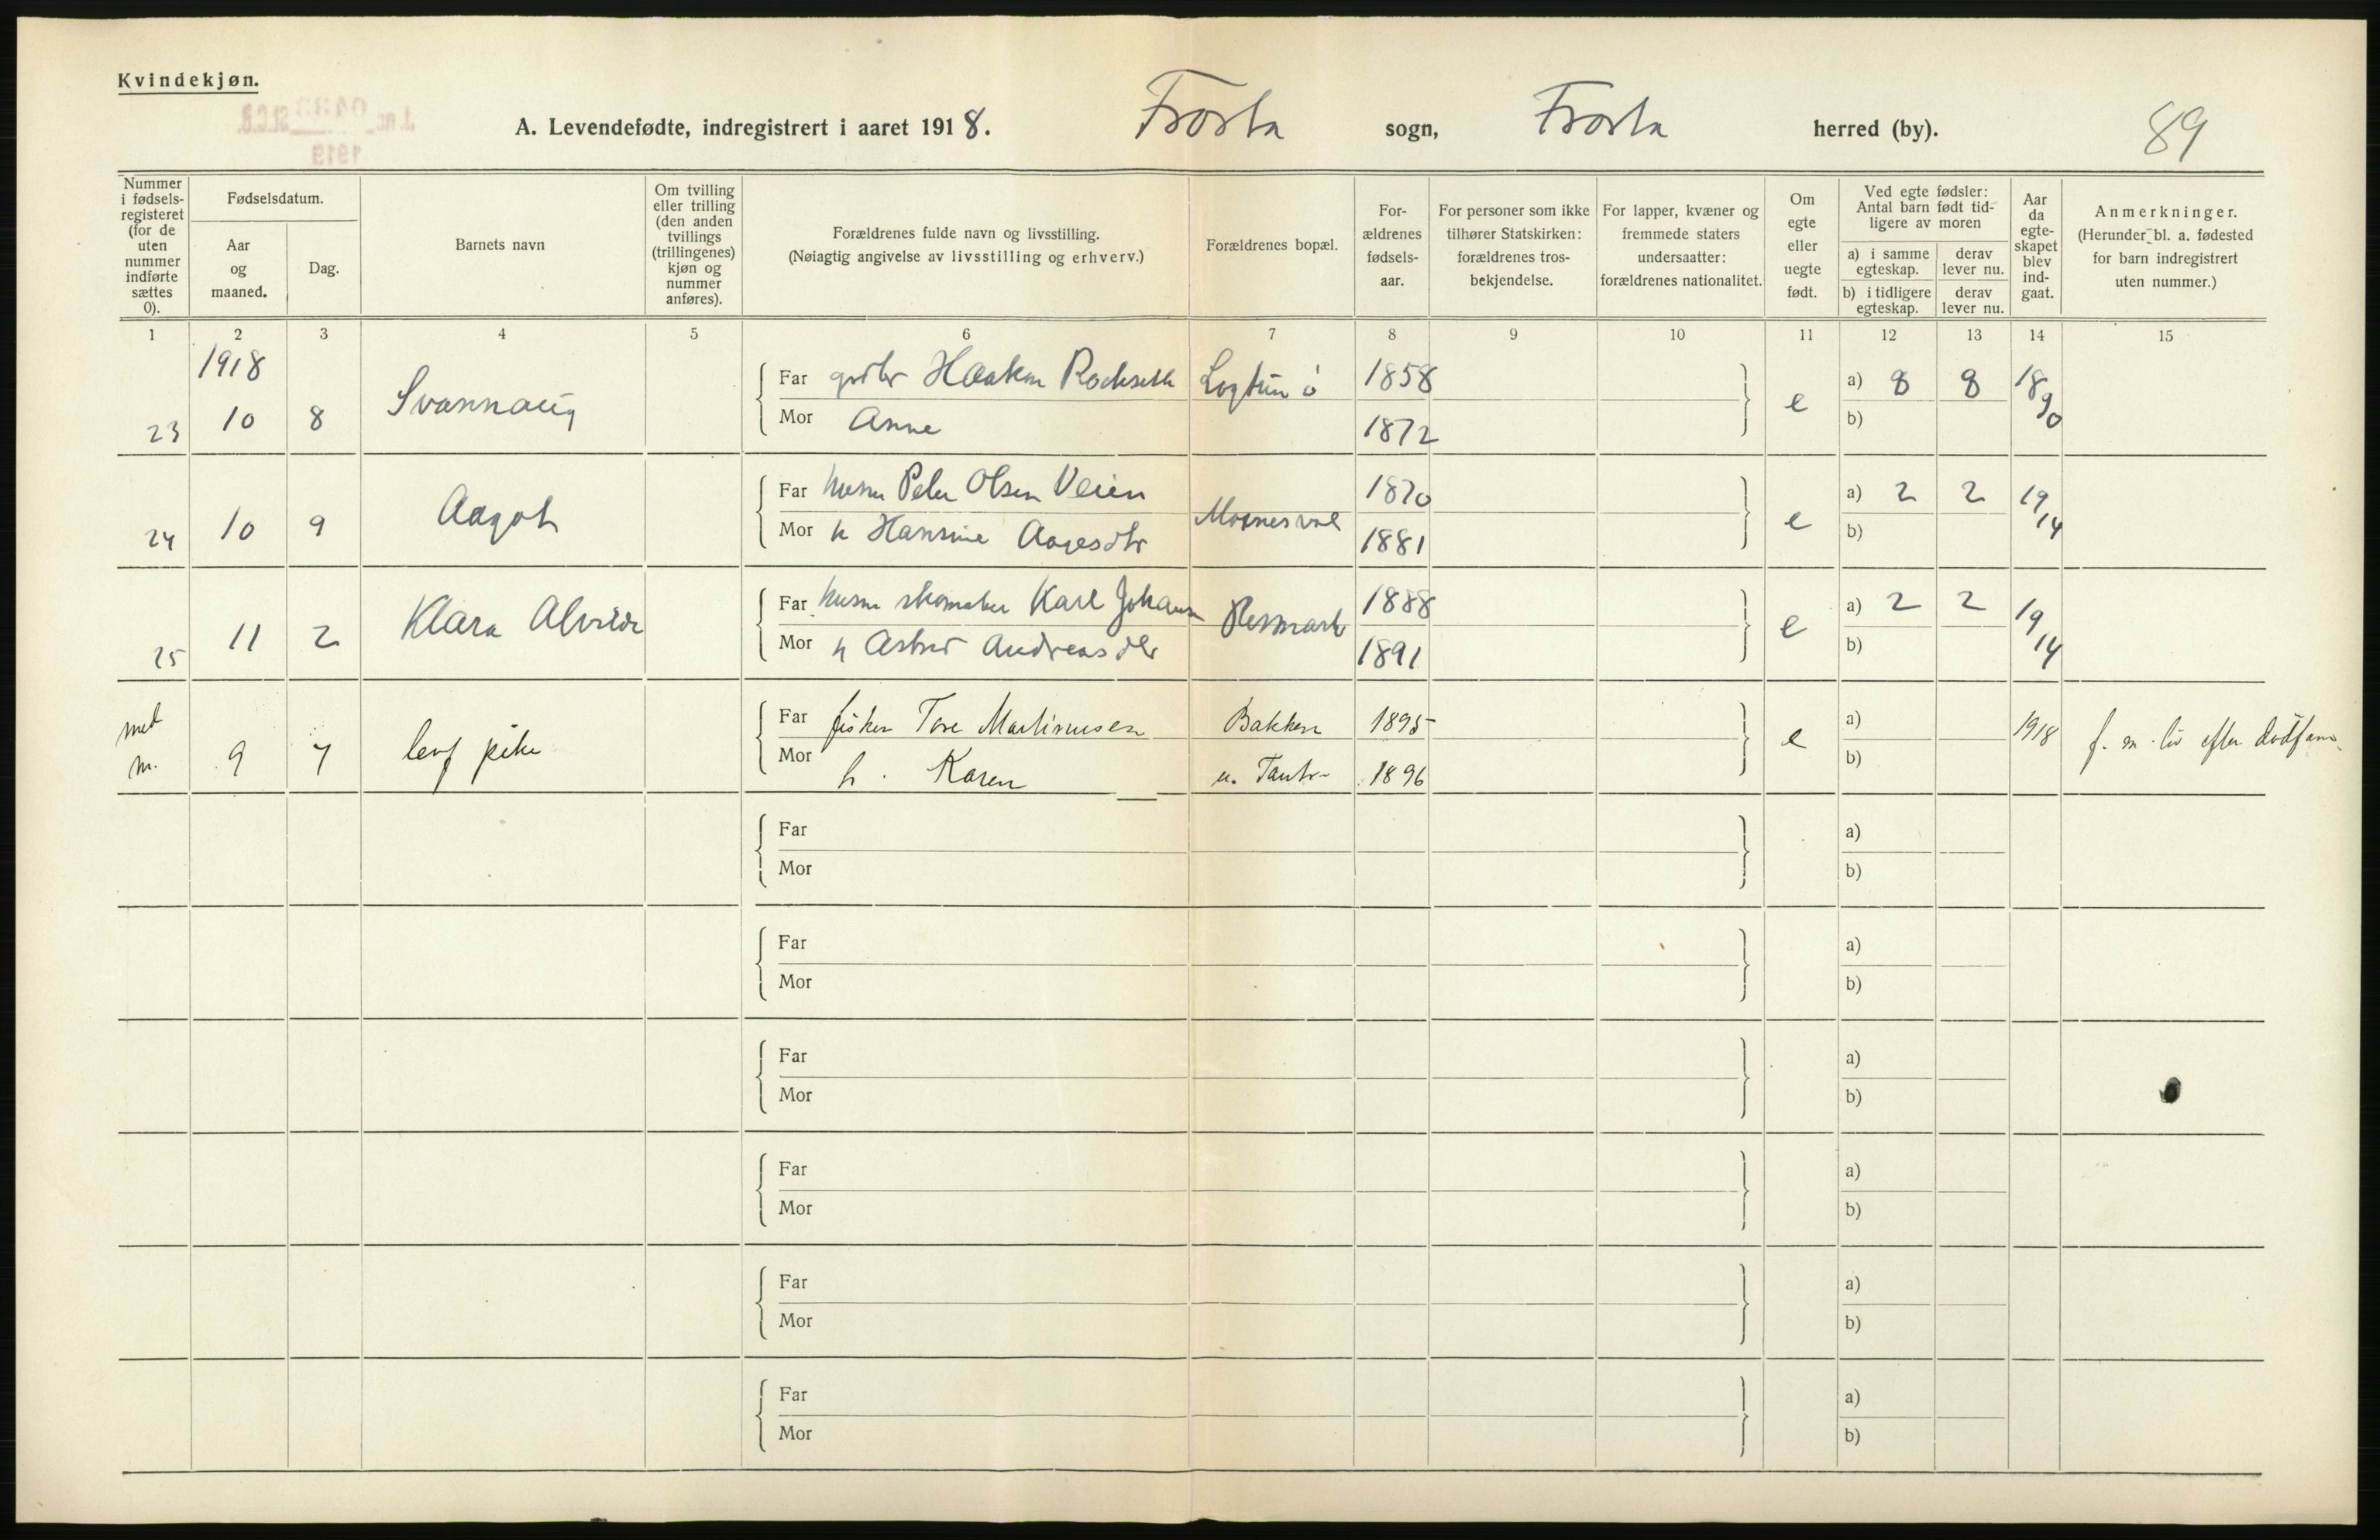 Kvindekjøn.
A. Levendefødte, indregistrert i aaret 1918. Frosta sogn, Frosta herred (by). 89
Nummer i fødsels-registeret (for de uten nummer indførte sættes 0).
Fødselsdatum.
Aar og maaned.
Dag.
Barnets navn
Om tvilling eller trilling (den anden tvillings (trillingenes) kjøn og nummer anføres).
Forældrenes fulde navn og livsstilling.
(Nøiagtig angivelse av livsstilling og erhverv.)
Forældrenes bopæl.
For-ældrenes fødsels-aar.
For personer som ikke tilhører Statskirken: forældrenes tros-bekjendelse.
For lapper, kvæner og fremmede staters undersaatter: forældrenes nationalitet.
Om egte eller uegte født.
Ved egte fødsler: Antal barn født tid-ligere av moren
a) i samme egteskap. derav lever nu.
b) i tidligere egteskap. derav lever nu.
Aar da egte-skapet blev ind-gaat.
Anmerkninger.
(Herunder bl. a. fødested for barn indregistrert uten nummer.)
1 2 3 4 5 6 7 8 9 10 11 12 13 14 15
1918
23 10 8 Svannaug Far Haakon 1858 e a) 8 8 1890
Mor Anne 1872 b)
24 10 9 Aagot Far Peder Olsen Veien 1870 e a) 2 2 19/14
Mor h Hansine Aagesdtr 1881 b)
25 11 2 Klara Alvilde Far skomaker Karl Johansen 1888 e a) 2 2 19/14
Mor h Astrid Andreasdtr 1891 b)
9 7 pike Far fisker Tore Martinusen Bakken 1895 e a) 1918 f. m. liv efter
Mor h. Karen u. Tautr 1896 b)
Far a)
Mor b)
Far a)
Mor b)
Far a)
Mor b)
Far a)
Mor b)
Far a)
Mor b)
Far a)
Mor b)